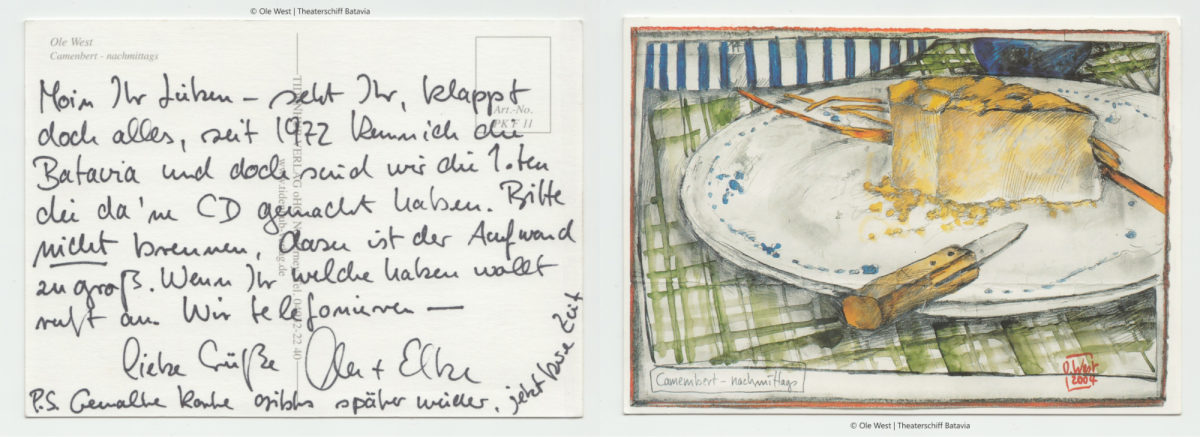 © Ole West | Theaterschiff Batavia
Ole West
Camenbert - nachmittags
Art.-No.
PK F 11
Moin Ihr Lieben – seht Ihr, klappt
doch alles, seit 1972 kenn ich die
Batavia und doch sind wir die 1.ten
die da 'ne CD gemacht haben. Bitte
nicht brennen, dazu ist der Aufwand
zu groß. Wenn Ihr welche haben wollt
ruft an. Wir telefonieren –
liebe Grüße Ole + Elke
P.S. Gemalte Karte gibts später wieder, jetzt keine Zeit
Camembert - nachmittags
O. West
2004
© Ole West | Theaterschiff Batavia